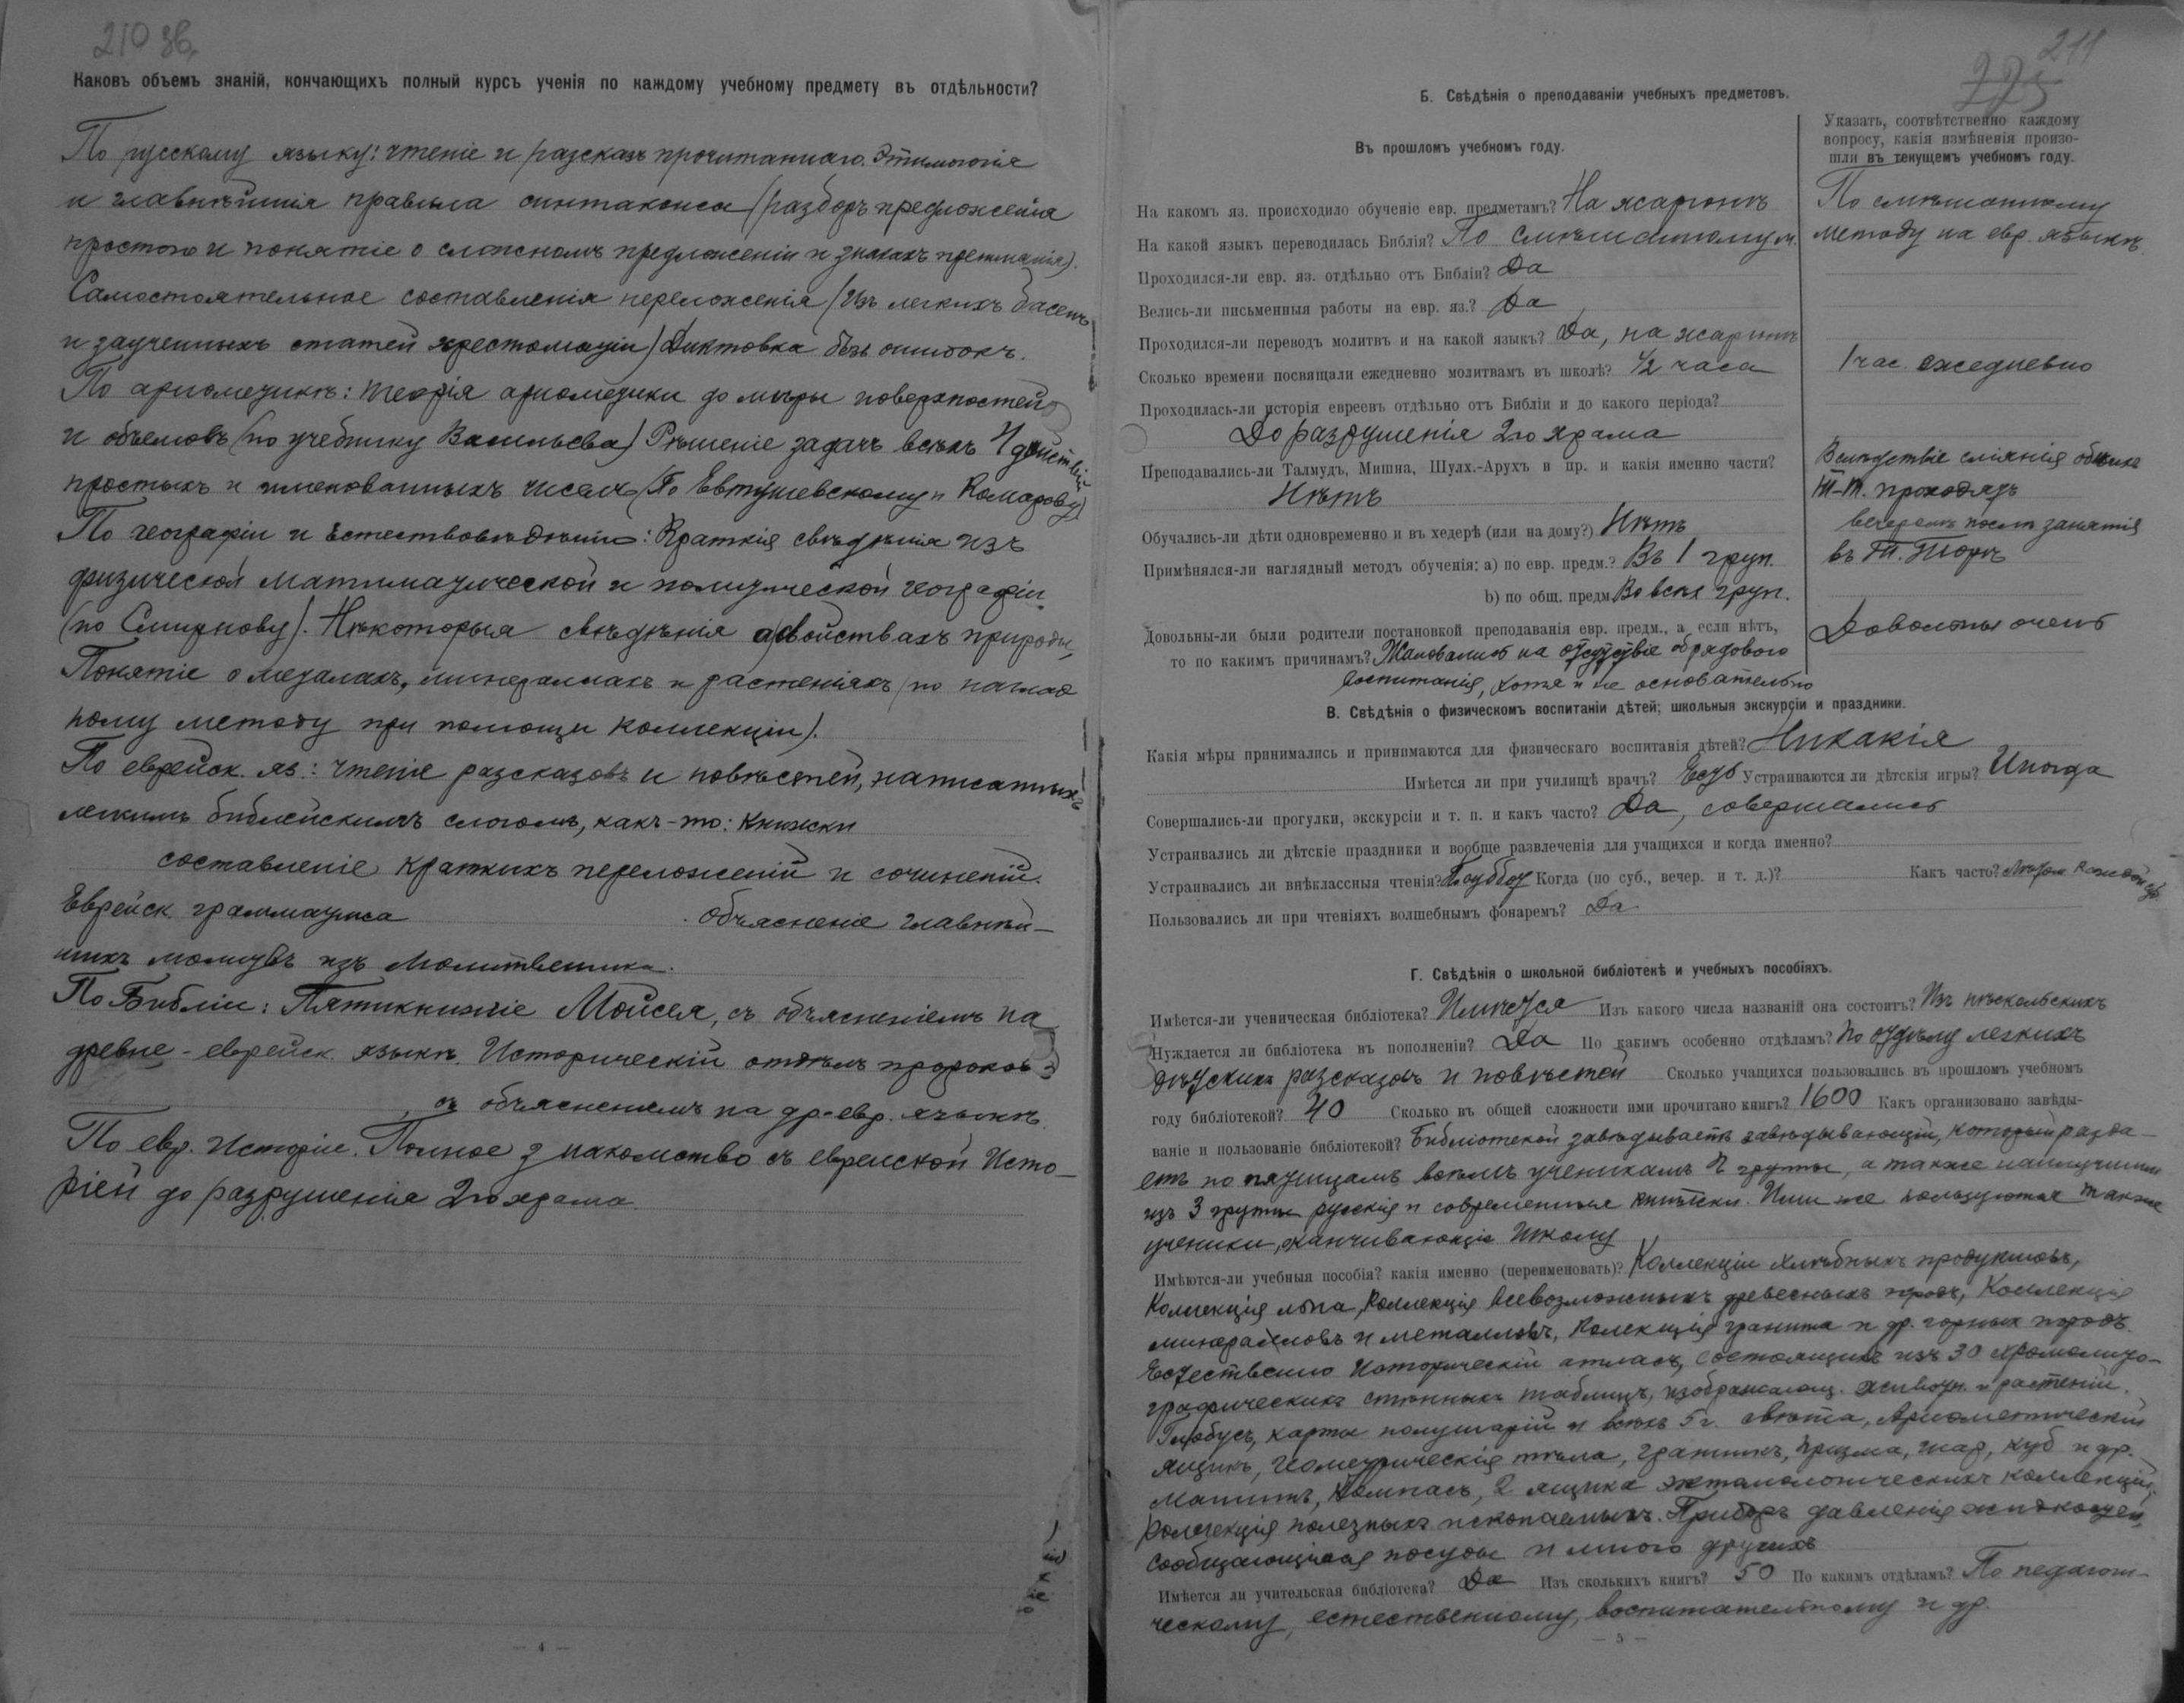 210 зв.
Каковъ объемъ знаній, кончающихъ полный курсъ ученія по каждому учебному предмету въ отдѣльности?
По русскому языку: чтеніе и разсказъ прочитаннаго. Этимологія
и главнѣйшія правила синтаксиса (разборъ предложенія
простого и понятіе о сложномъ предложеніи и знакахъ препинанія).
Самостоятельное составленія переложенія (изъ легкихъ басенъ
и заученныхъ статей хрестоматіи) Диктовка безъ ошибокъ.
По ариөметикѣ: теорія ариөметики до мѣры поверхностей
и объемовъ (по учебнику Васильева) Рѣшеніе задачъ всѣхъ 4 дѣйствій
простыхъ и именованныхъ чиселъ (По Евтушевскому и Комарову)
По географіи и Естествовѣдѣнію: Краткія свѣдѣнія изъ
физической математической и политической географіи
(по Смирнову). Нѣкоторыя свѣдѣнія о свойствахъ природы,
Понятіе о металахъ, минералахъ и растеніяхъ (по нагляд
ному методу при помощи коллекціи).
По еврейск. яз: чтеніе разсказовъ и повѣстей, написанныхъ
легкимъ библейскимъ слогомъ, какъ-то: книжски
составленіе краткихъ переложеній и сочиненій.
Еврейск. грамматика объясненіе главнѣй-
шихъ молитвъ изъ Молитвенника.
По Библіи: Пятикнижіе Моисея, съ объясненіемъ на
древне-еврейск. языкѣ. Историческій отдѣлъ пророковъ
, съ объясненіемъ на др-евр. языкѣ.
По евр. Исторіи. Полное знакомство съ еврейской Исто-
ріей до разрушенія 2го храма.
— 4 —
211
225
Б. Свѣдѣнія о преподаваніи учебныхъ предметовъ.
Въ прошломъ учебномъ году.
Указать, соотвѣтственно каждому
вопросу, какія измѣненія произо-
шли въ текущемъ учебномъ году.
На какомъ яз. происходило обученіе евр. предметамъ? На жаргонѣ По смѣшанному
На какой языкъ переводилась Библія? По Смѣшанному м. методу на евр. языкѣ.
Проходился-ли евр. яз. отдѣльно отъ Библіи? Да
Велись-ли письменныя работы на евр. яз.? Да
Проходился-ли переводъ молитвъ и на какой языкъ? Да, на жаргонъ
Сколько времени посвящали ежедневно молитвамъ въ школѣ? ½ часа 1 час. ежедневно
Проходилась-ли исторія евреевъ отдѣльно отъ Библіи и до какого періода?
До разрушенія 2го храма
Преподавались-ли Талмудъ, Мишна, Шулх.-Арухъ и пр. и какія именно части? Вслѣдствіе сліянія
Нѣтъ Т-Т. проходятъ
Обучались-ли дѣти одновременно и въ хедерѣ (или на дому?) Нѣтъ вечеромъ послѣ занятія
Примѣнялся-ли наглядный методъ обученія: а) по евр. предм.? Въ 1 груп. въ Т. Торѣ
b) по общ. предм. Во всѣх груп.
Довольны-ли были родители постановкой преподаванія евр. предм., а если нѣтъ, Довольны очень
то по какимъ причинамъ? Жаловались на отсутствіе обрядового
воспитанія, хотя и не основательно
В. Свѣдѣнія о физическомъ воспитаніи дѣтей; школьныя экскурсіи и праздники.
Какія мѣры принимались и принимаются для физическаго воспитанія дѣтей? Никакія
Имѣется ли при училищѣ врачъ? Есть Устраиваются ли дѣтскія игры? Иногда
Совершались-ли прогулки, экскурсіи и т. п. и какъ часто? Да, совершались
Устраивались ли дѣтскіе праздники и вообще развлеченія для учащихся и когда именно?
Устраивались ли внѣклассныя чтенія? По субботу Когда (по суб., вечер. и т. д.)? Какъ часто?
Пользовались ли при чтеніяхъ волшебнымъ фонаремъ? Да
Г. Свѣдѣнія о школьной библіотекѣ и учебныхъ пособіяхъ.
Имѣется-ли ученическая библіотека? Имѣется Изъ какого числа названій она состоитъ? Изъ нѣскольскихъ
Нуждается ли библіотека въ пополненіи? Да По какимъ особенно отдѣламъ? По отдѣлу легкихъ
дѣтскихъ разсказовъ и повѣстей Сколько учащихся пользовались въ прошломъ учебномъ
году библіотекой? 40 Сколько въ общей сложности ими прочитано книгъ? 1600 Какъ организовано завѣды-
ваніе и пользованіе библіотекой? Библіотекой завѣдываетъ завѣдывающій, который разда-
етъ по пятницамъ всѣмъ ученикамъ 4 группы, а также наилучшимъ
изъ 3 группы русскія и современныя книжки. Ими же пользуются также
ученики, оканчивающіе школу
Имѣются-ли учебныя пособія? какія именно (переименовать)? Коллекціи хлѣбныхъ продуктовъ,
Коллекція льна, Коллекція всевозможныхъ древесныхъ породъ, Коллекція
минераловъ и металловъ, Колекція гранита и др. горных породъ.
Естественно Историческій атласъ, состоящихъ изъ 30 хромолито-
графическихъ стѣнныхъ таблицъ, изображающ. животн. и растеній.
Глобусъ, карты полушарій и всѣхъ 5 ч. свѣта, Ариөметическій
ящикъ, геометрическія тѣла, призма, шар, куб и др.
Магнитъ, Компасъ, 2 ящика энтомологическихъ коллекцій,
коллекція полезныхъ ископаемыхъ. Приборъ давленія жидкостей,
сообщающіеся посуды и много другихъ
Имѣется ли учительская библіотека? Да Изъ сколькихъ книгъ? 50 По какимъ отдѣламъ? По педагоги-
ческому, естественному, воспитательному и др.
— 5 —